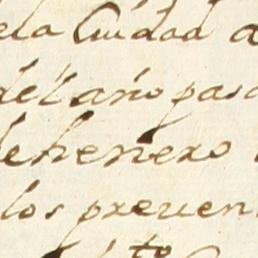 ela Ciudad a
del año pasa
dehenero
los preven
to